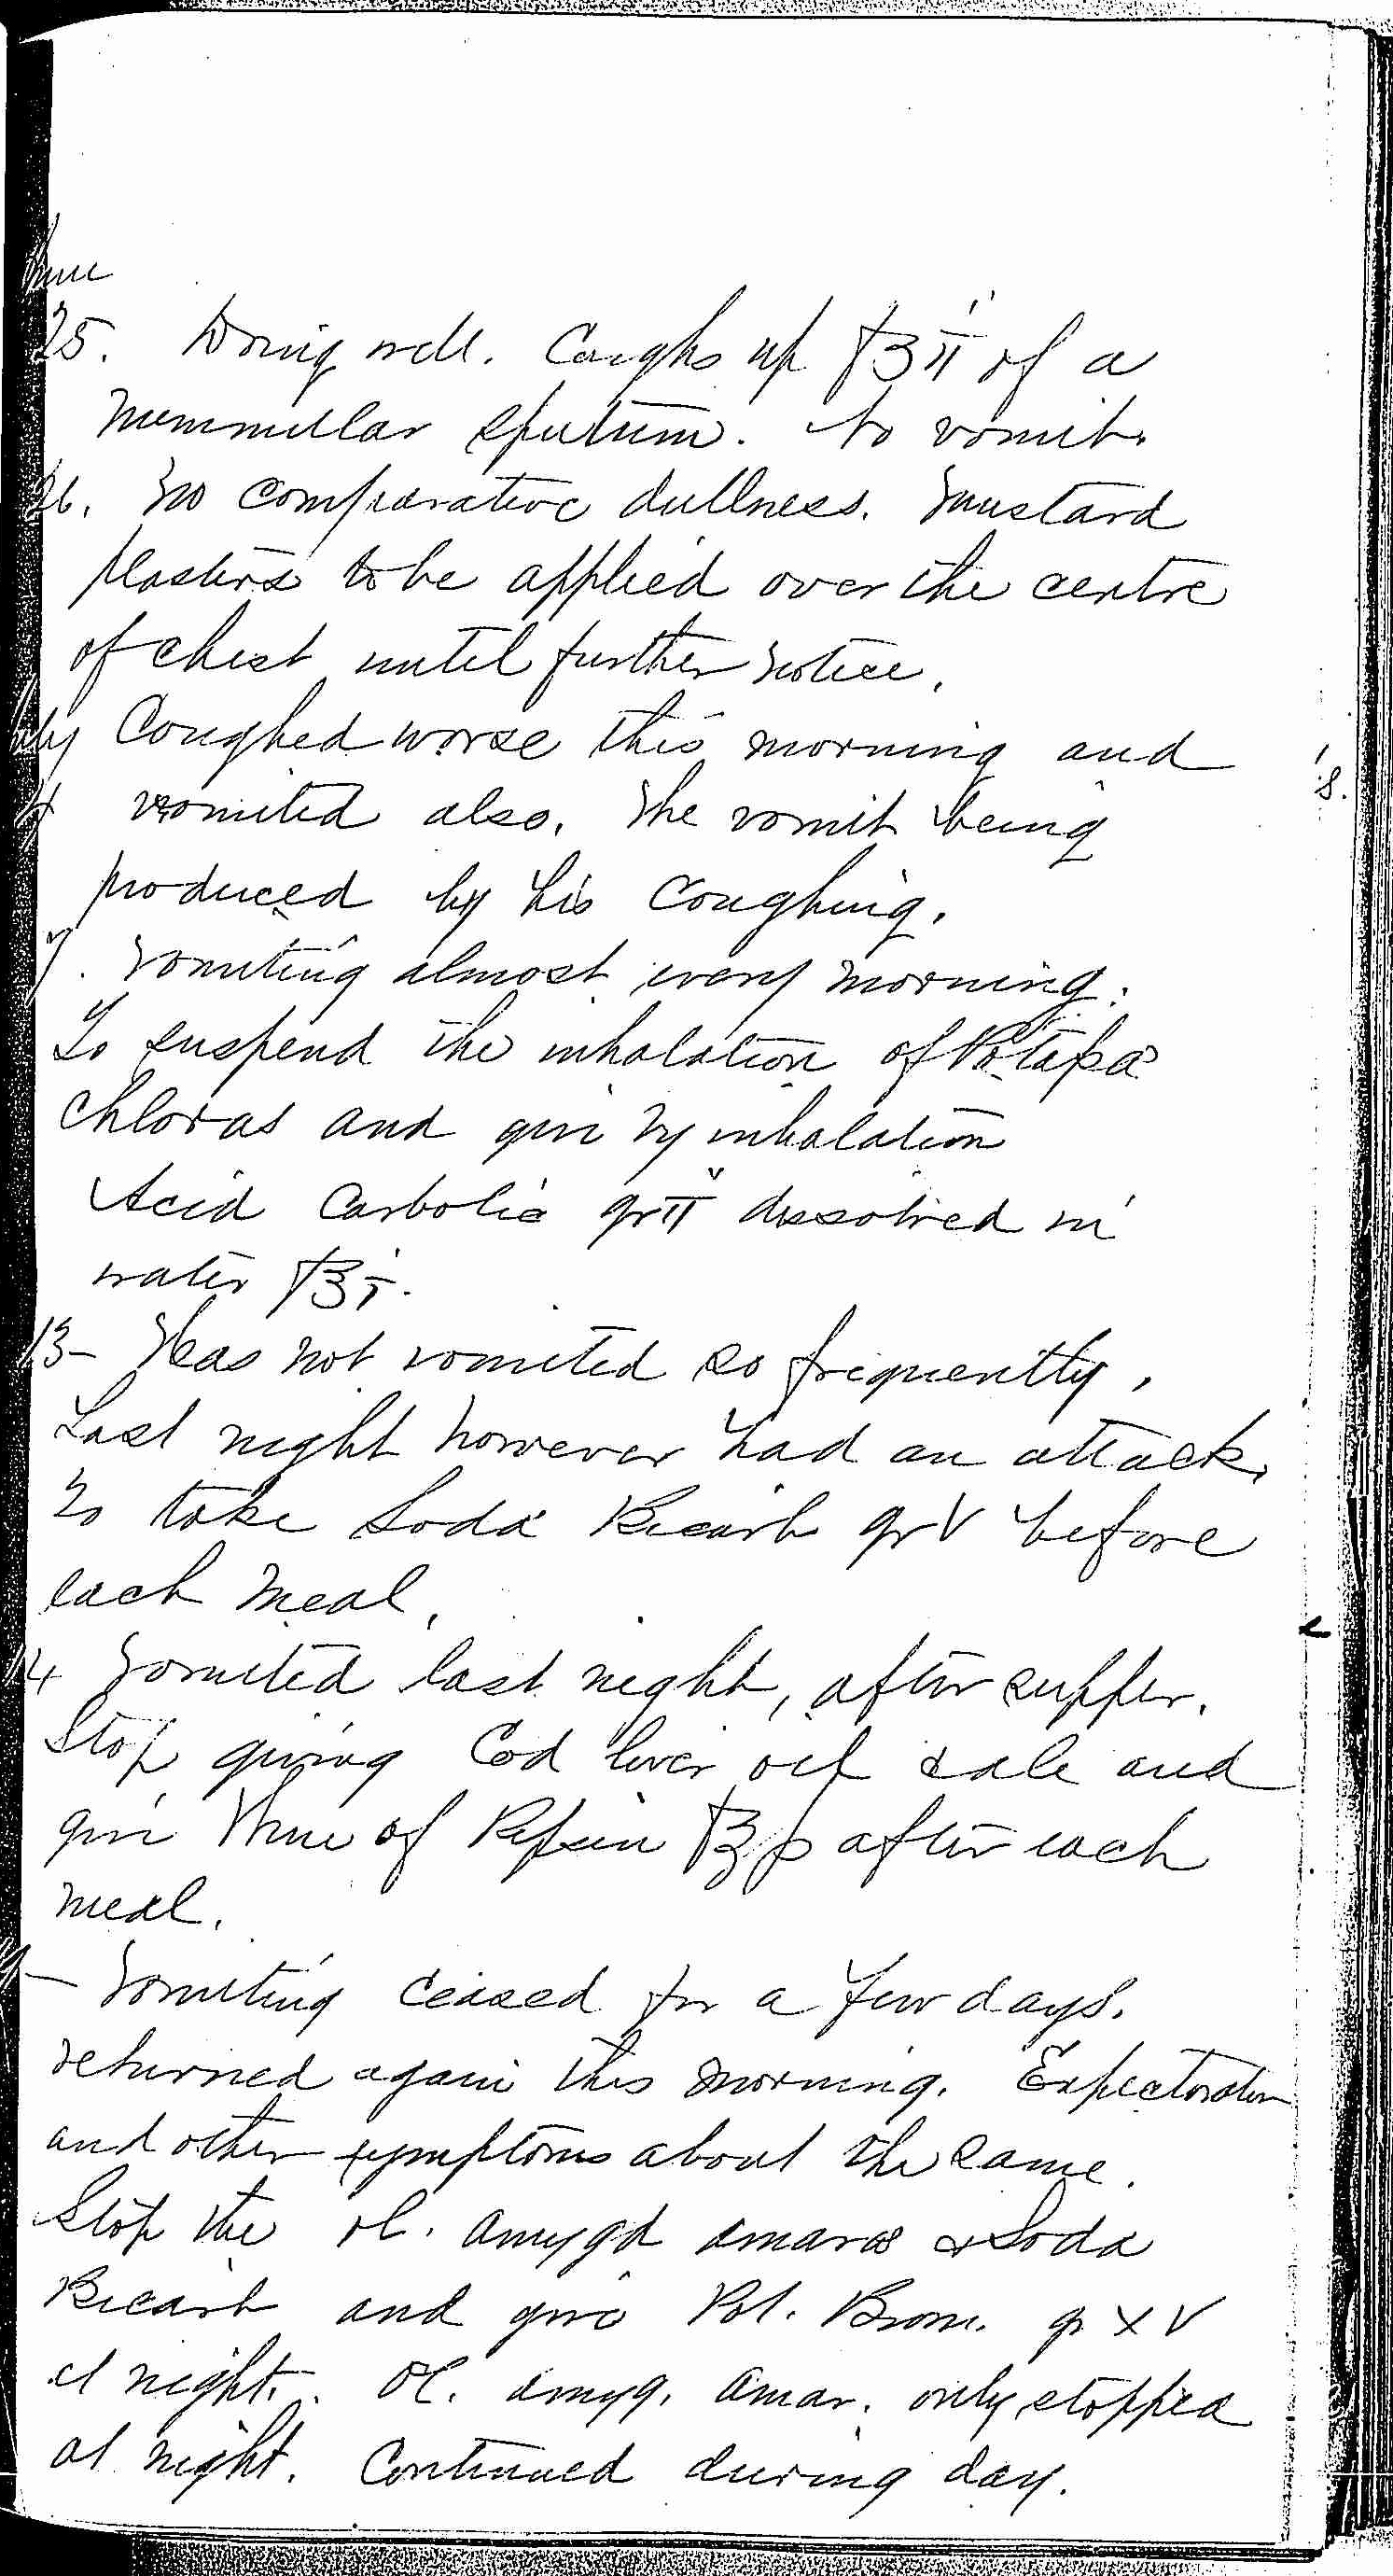 June
25. Doing well. Coughs up f℥ii of a
nummular sputum. No vomit.
26. No comparative dullness. Mustard
plasters to be applied over the centre
of chest until further notice.
July Coughed worse this morning and
4 vomited also. The vomit being
produced by his coughing.
7. Vomiting almost every morning.
To suspend the inhalation of Potassa
chloras and give by inhalation
Acid Carbolic gr ii dissolved in
water f℥i.
13- Has not vomited so frequently,
Last night however had an attack.
To take Soda Bicarb gr V before
each meal.
14 Vomited last night, after supper.
Stop giving Cod liver oil & ale and
give Wine of Pepsin f℥ss after each
meal.
- Vomiting ceased for a few days.
returned again this morning. Expectoration
and other symptoms about the same.
Stop the ol. amygd amarae & Soda
Bicarb and give Pot. Brom. gr XV
at night. Ol. amyg. amar. only stopped
at night. Continued during day.